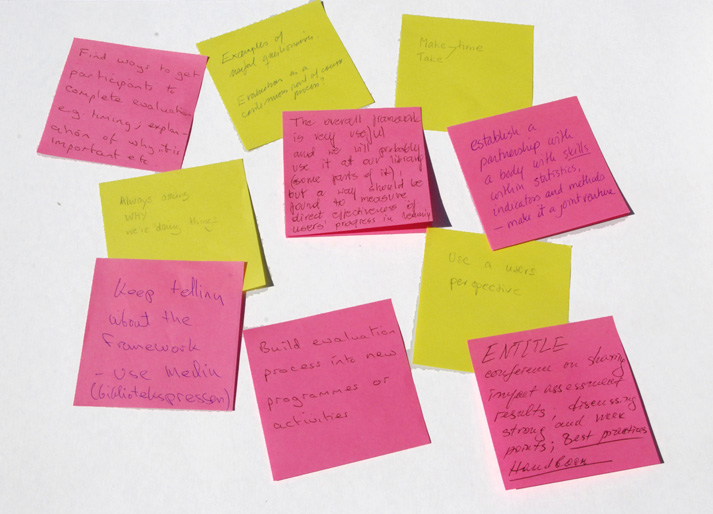 Find ways to get
participants to
complete evaluation
e.g timing, explan-
ation of why it is
important etc.
Examples of
useful questionnaires.
Evaluation as a
continuous part of course
process?
Make time
Take
The overall framework
is very useful
and we will probably
use it at our library
(some parts of it),
but a way should be
found to measure
direct effectiveness of
users' progress in learning
establish a
partnership with
a body with skills
within statistics,
indicators and methods
– make it a joint venture
Always asking
why
we're doing things
Use a users
perspective
Keep telling
about the
framework
- Use Media
(bibliotekspressen)
Build evaluation
process into new
programmes or
activities
ENTITLE
conference on sharing
impact assessment
results, discussing
strong and week
points; Best practices
HandBook